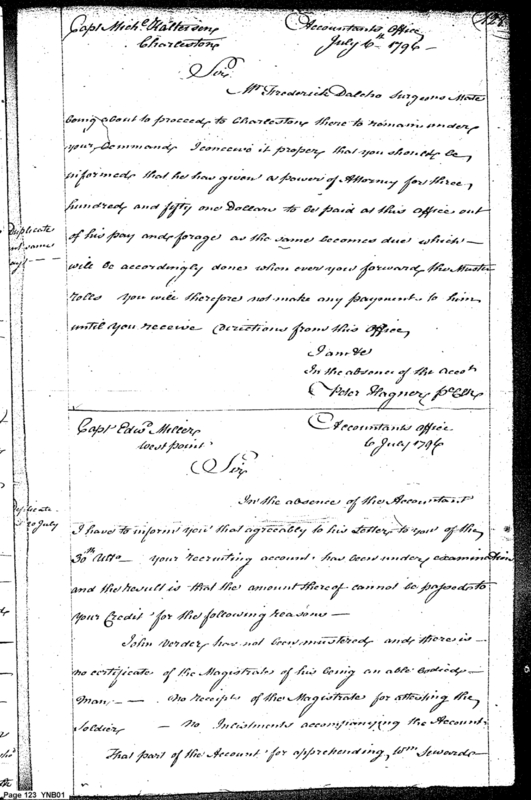 Capt Mich.l Kalteisen Accountants Office
Charleston July 6th 1796 —
Sir
Mr Frederick Dalcho Surgeons Mate
being about to proceed to Charleston there to remain under
your Command I conceive it proper that you should be
informed that he has given a power of Attorney for three
hundred and fifty one Dollars to be paid at this office out
of his pay and forage as the same becomes due which —
will be accordingly done when ever you forward the Muster
rolls you will therefore not make any payment to him
until you receive Directions from this Office
I am &c
In the absence of the acct
Peter Hagner
Duplicate
same
Capt Edwd Miller Accountants Office
West point 6 July 1796
Sir
In the absence of the Accountant
I have to inform you that agreeably to his Letter to you of the
30th Ulto your recruiting account has been under examination
and the result is that the amount thereof cannot be passed to
your Credit for the following reasons —
John Verder has not been mustered and there is —
no certificate of the Magistrate of his being an able bodied —
Man — no receipt of the Magistrate for attesting the
Soldier — No Inlistments accompanying the Account
That part of the Account for apprehending Wm Seward
Duplicate
20 July
Page 123 YNB01